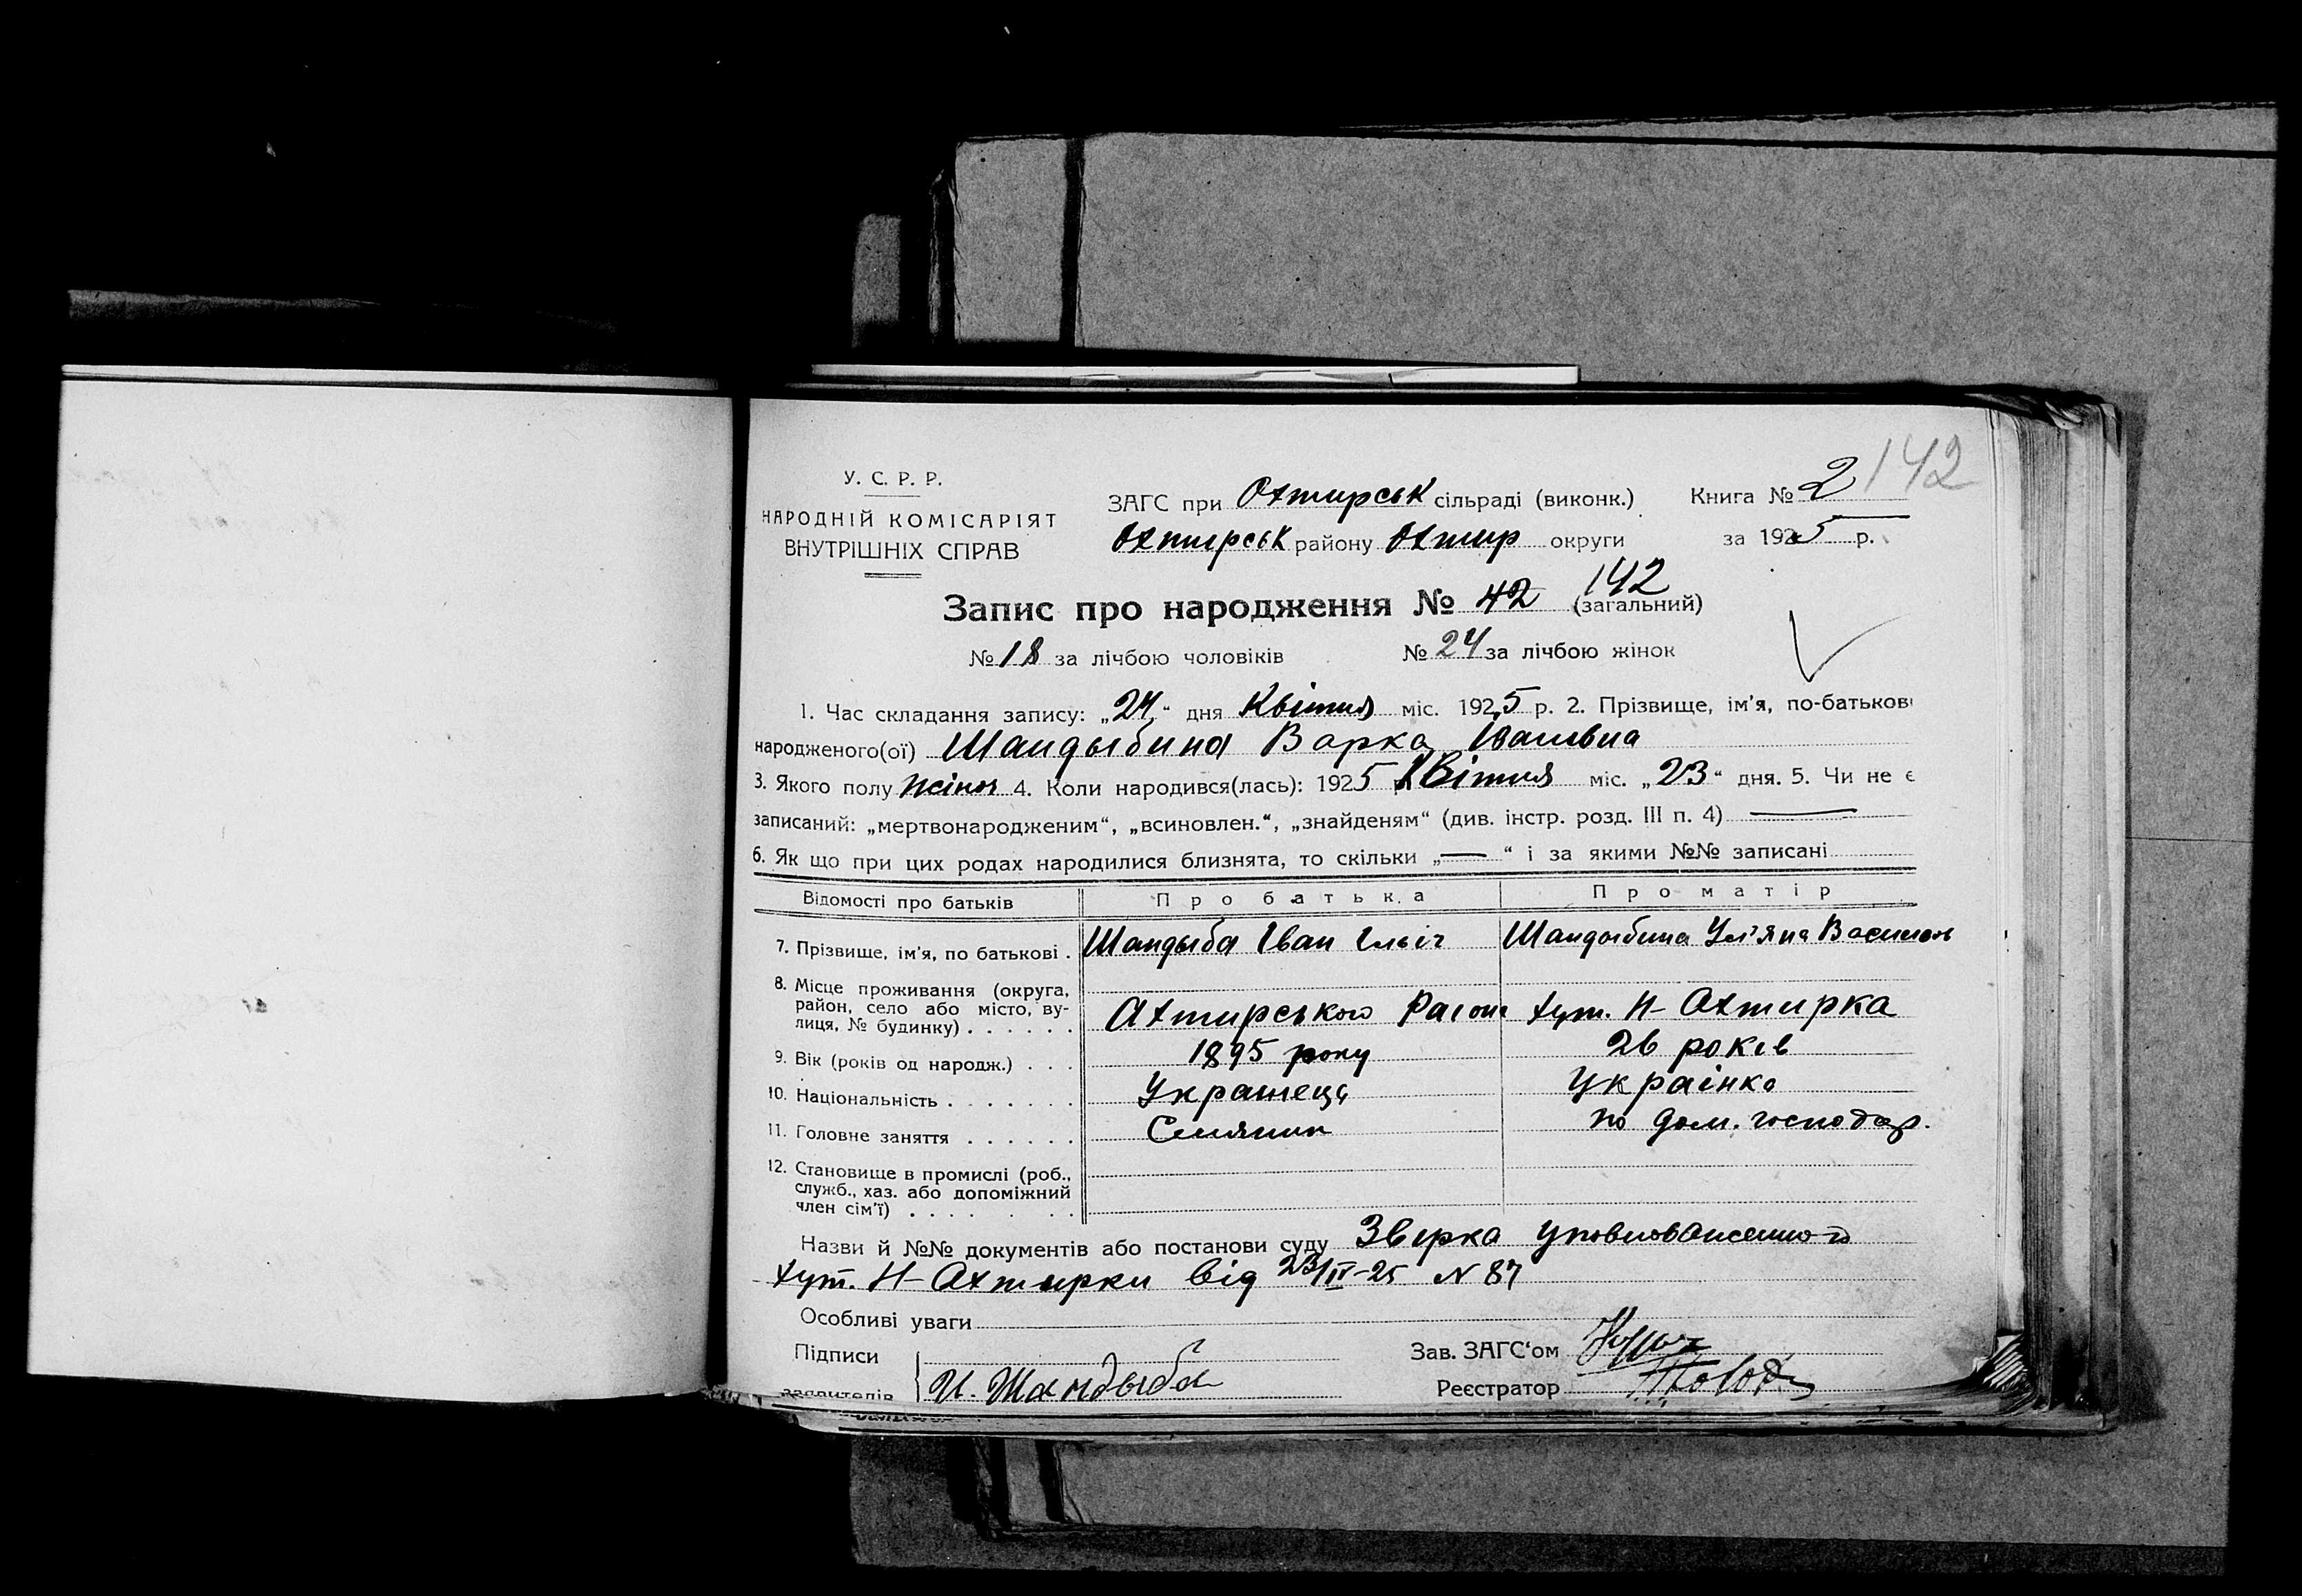 142
У. С. Р. Р.
НАРОДНІЙ КОМІСАРІЯТ
ВНУТРІШНІХ СПРАВ
ЗАГС при Охтирськ сільраді (виконк.)
Охтирськ району Охтир округи
Книга № 2
за 1925 р.
Запис про народження № 42 (загальний) 142
№ 18 за лічбою чоловіків № 24 за лічбою жінок
1. Час складання запису: „24“ дня Квітня міс. 1925 р. 2. Прізвище, ім'я, по-батькові
народженого(ої) Шандыбина Варка Івановна
3. Якого полу жіноч 4. Коли народився(лась): 1925 Квітня міс. „23“ дня. 5. Чи не є
записаний: „мертвонародженим“, „всиновлен.“, „знайденям“ (див. інстр. розд. III п. 4) —
6. Як що при цих родах народилися близнята, то скільки „—“ і за якими №№ записані
Відомості про батьків Про батька Про матір
7. Прізвище, ім'я, по батькові . Шандыба Іван Ільіч Шандыбина Ул'яна Василов
8. Місце проживання (округа,
район, село або місто, ву-
лиця, № будинку) . . . . . . Ахтирського Раіон хут. Н-Охтирка
9. Вік (років од народж.) . . . 1895 року 26 років
10. Національність . . . . . . . Українець Українка
11. Головне заняття . . . . . . Селянин по дом. господар.
12. Становище в промислі (роб.,
служб., хаз. або допоміжний
член сім'ї) . . . . . . .
Назви й №№ документів або постанови суду Звірка уповноваженного
хут. Н-Ахтырки від 23/IV-25 N 87
Особливі уваги
Підписи
заявителів И. Шандыба
Зав. ЗАГС'ом
Реєстратор